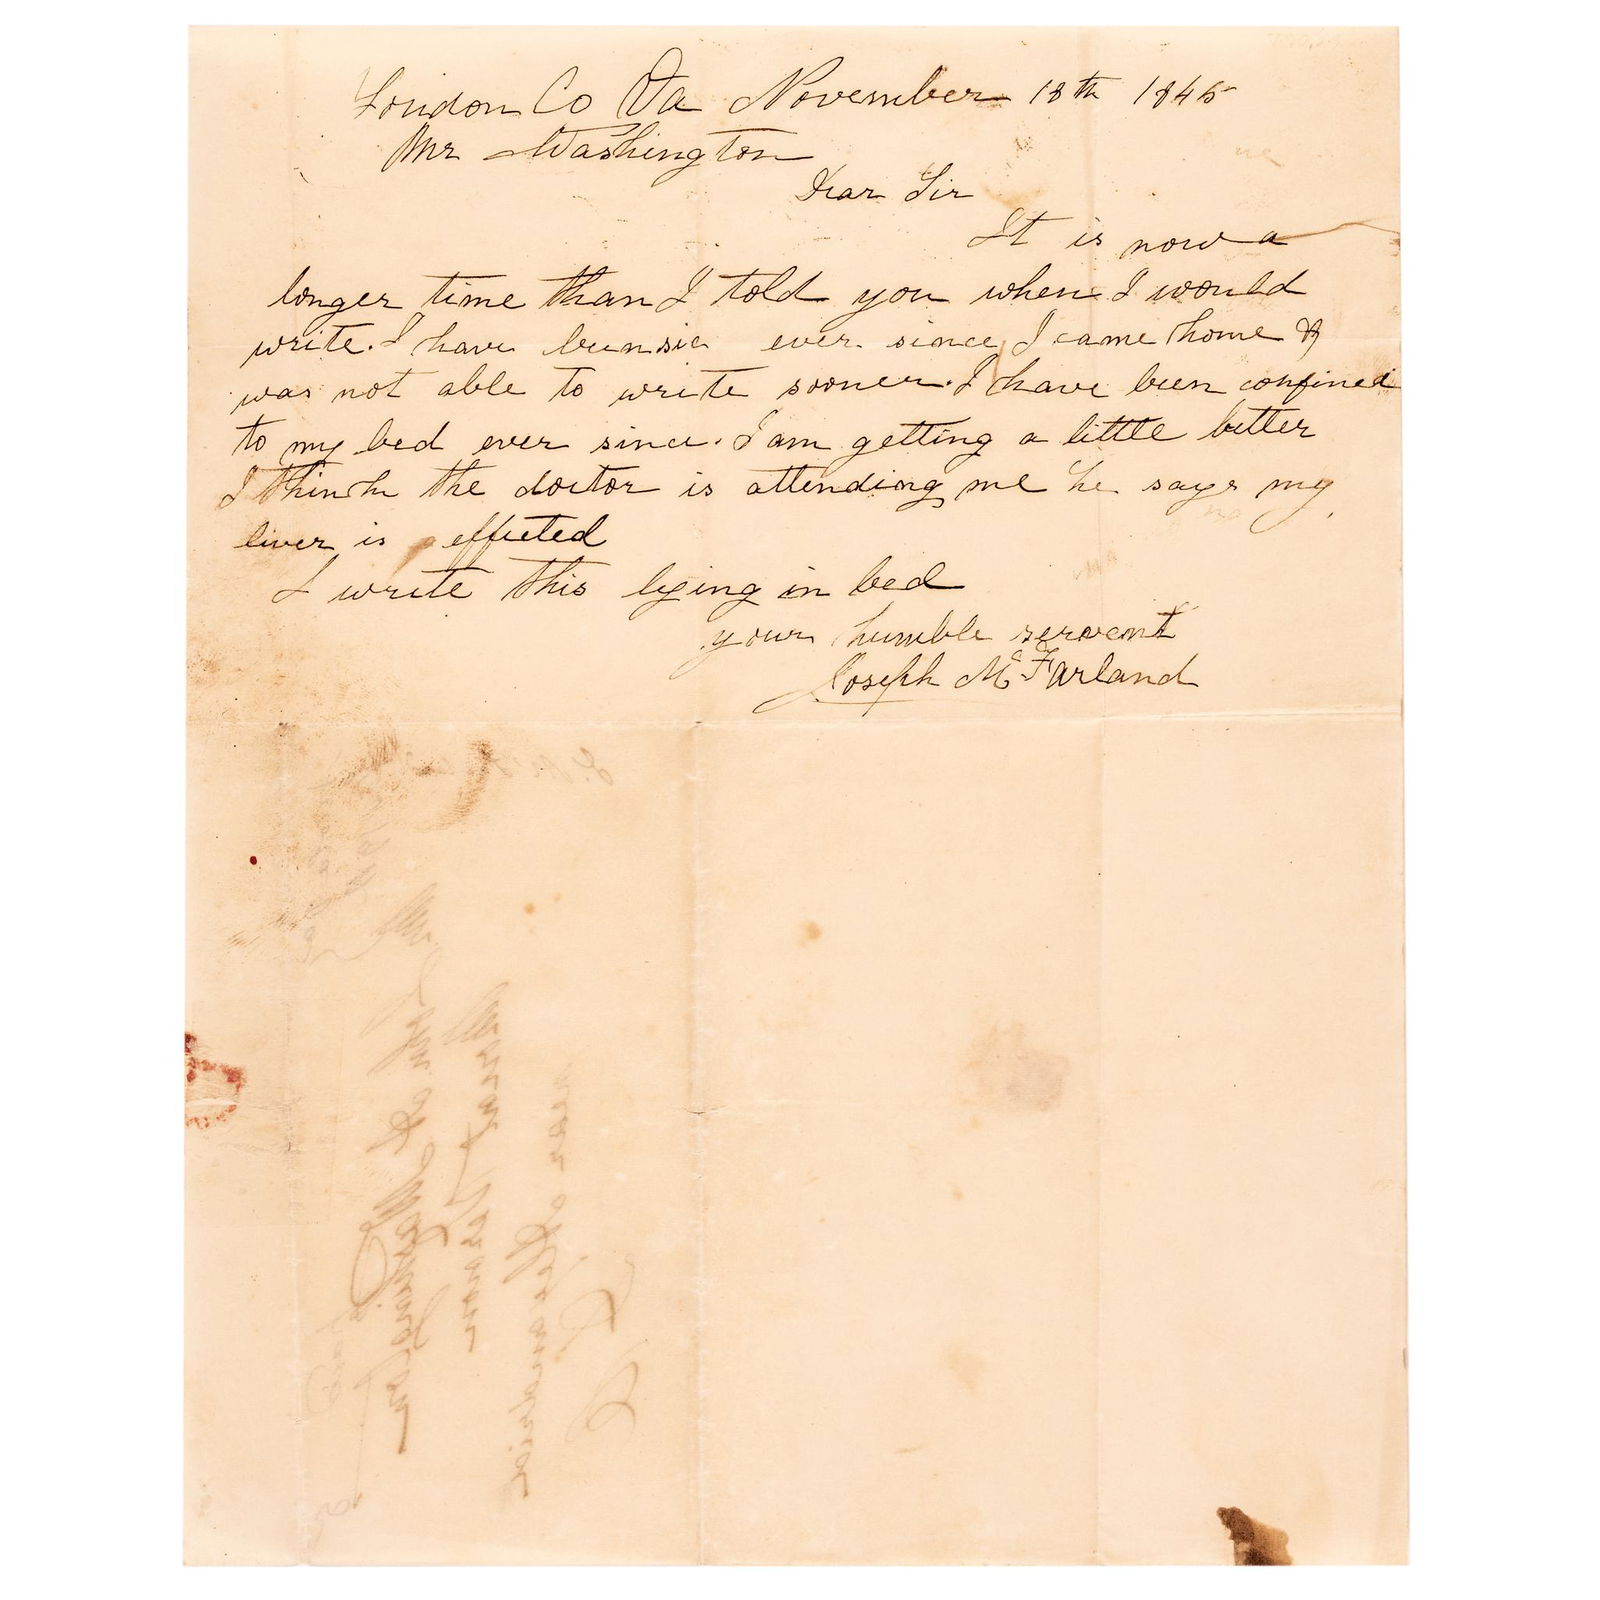 Loudon Co Va November 18th 1845
Mr Washington
Dear Sir
It is now a
longer time than I told you when I would
write. I have been sic ever since I came home &
was not able to write sooner. I have been confined
to my bed ever since. I am getting a little better
I think the doctor is attending me he says my
liver is effected
I write this lying in bed
your humble servent
Joseph McFarland